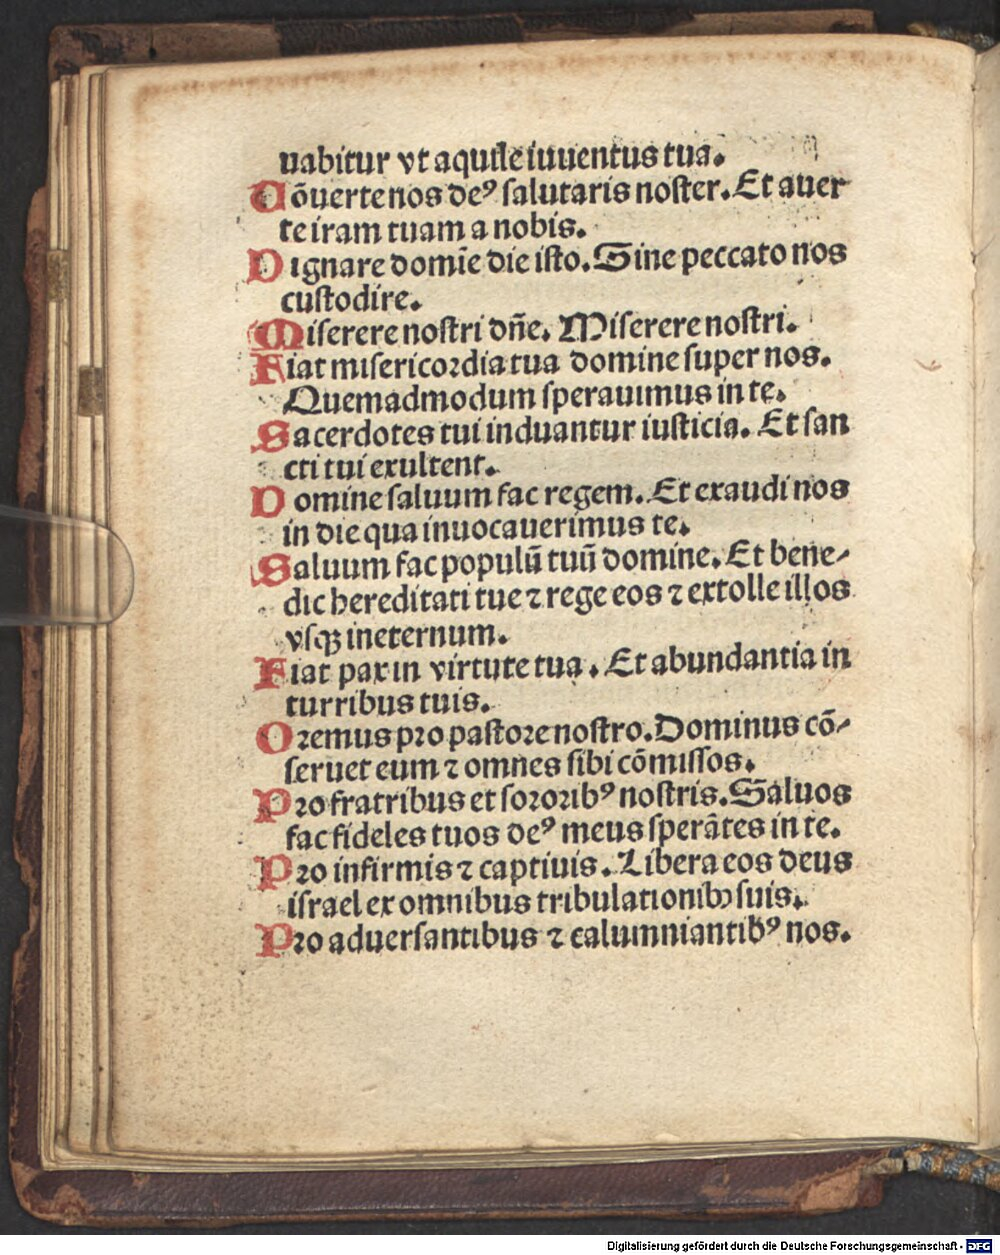 uabitur vt aquile iuuentus tua.
Cõuerte nos deꝰ salutaris noster. Et auer
te iram tuam a nobis.
Dignare domīe die isto. Sine peccato nos
custodire.
Miserere nostri dñe. Miserere nostri.
Fiat misericordia tua domine super nos.
Quemadmodum sperauimus in te.
Sacerdotes tui induantur iusticia. Et san
cti tui exultent.
Domine saluum fac regem. Et exaudi nos
in die qua inuocauerimus te.
Saluum fac populū tuū domine. Et bene-
dic hereditati tue ⁊ rege eos ⁊ extolle illos
vsqꝫ ineternum.
Fiat pax in virtute tua. Et abundantia in
turribus tuis.
Oremus pro pastore nostro. Dominus cõ-
seruet eum ⁊ omnes sibi cõmissos.
Pro fratribus et sororibꝰ nostris. Saluos
fac fideles tuos deꝰ meus sperãtes in te.
Pro infirmis ⁊ captiuis. Libera eos deus
israel ex omnibus tribulationibꝫ suis.
Pro aduersantibus ⁊ calumniantibꝰ nos.
Digitalisierung gefördert durch die Deutsche Forschungsgemeinschaft - DFG